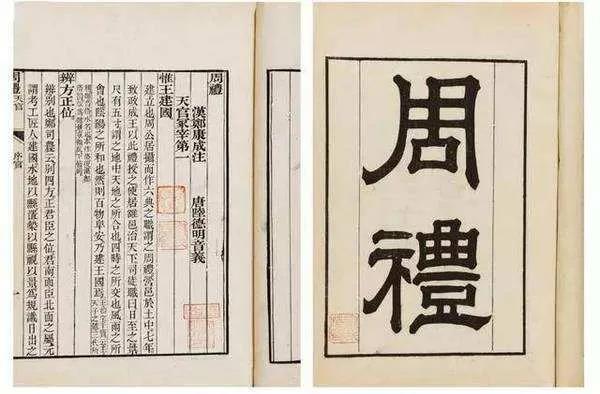 周禮
周禮
漢鄭康成注 唐陸德明音義
天官冢宰第一
惟王建國
建立也周公居攝而作六典之職謂之周禮營邑於土中七年
致政成王以此禮授之使居雒邑治天下司徒職曰日至之景
尺有五寸謂之地中天地之所合也四時之所交也風雨之所
會也陰陽之所和也然則百物阜安乃建王國焉
辨方正位
辨別也鄭司農云別四方正君臣之位君南面臣北面之屬玄
謂考工匠人建國水地以縣置槷以縣視以景爲規識日出之
周禮 天官 序官 一